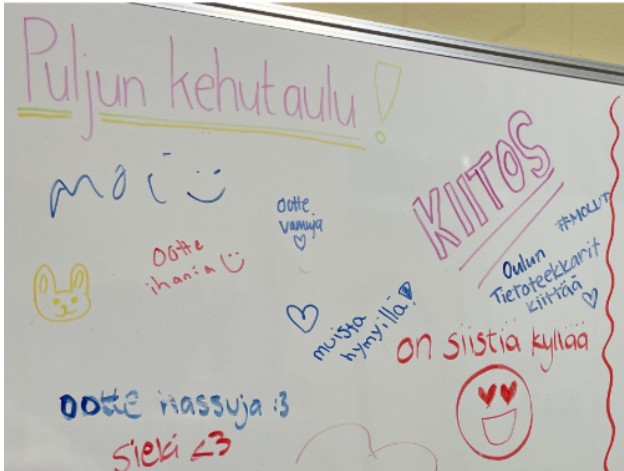 Puljun kehutaulu!
moi :)
ootte
vamuja
♡
KIITOS
#MOLLIT
ootte
ihania :)
Oulun
Tietoteekkarit
kiittää
♡
muista
hymyillä!
on siistiä kyllää
ootte hassuja :3
sieki <3